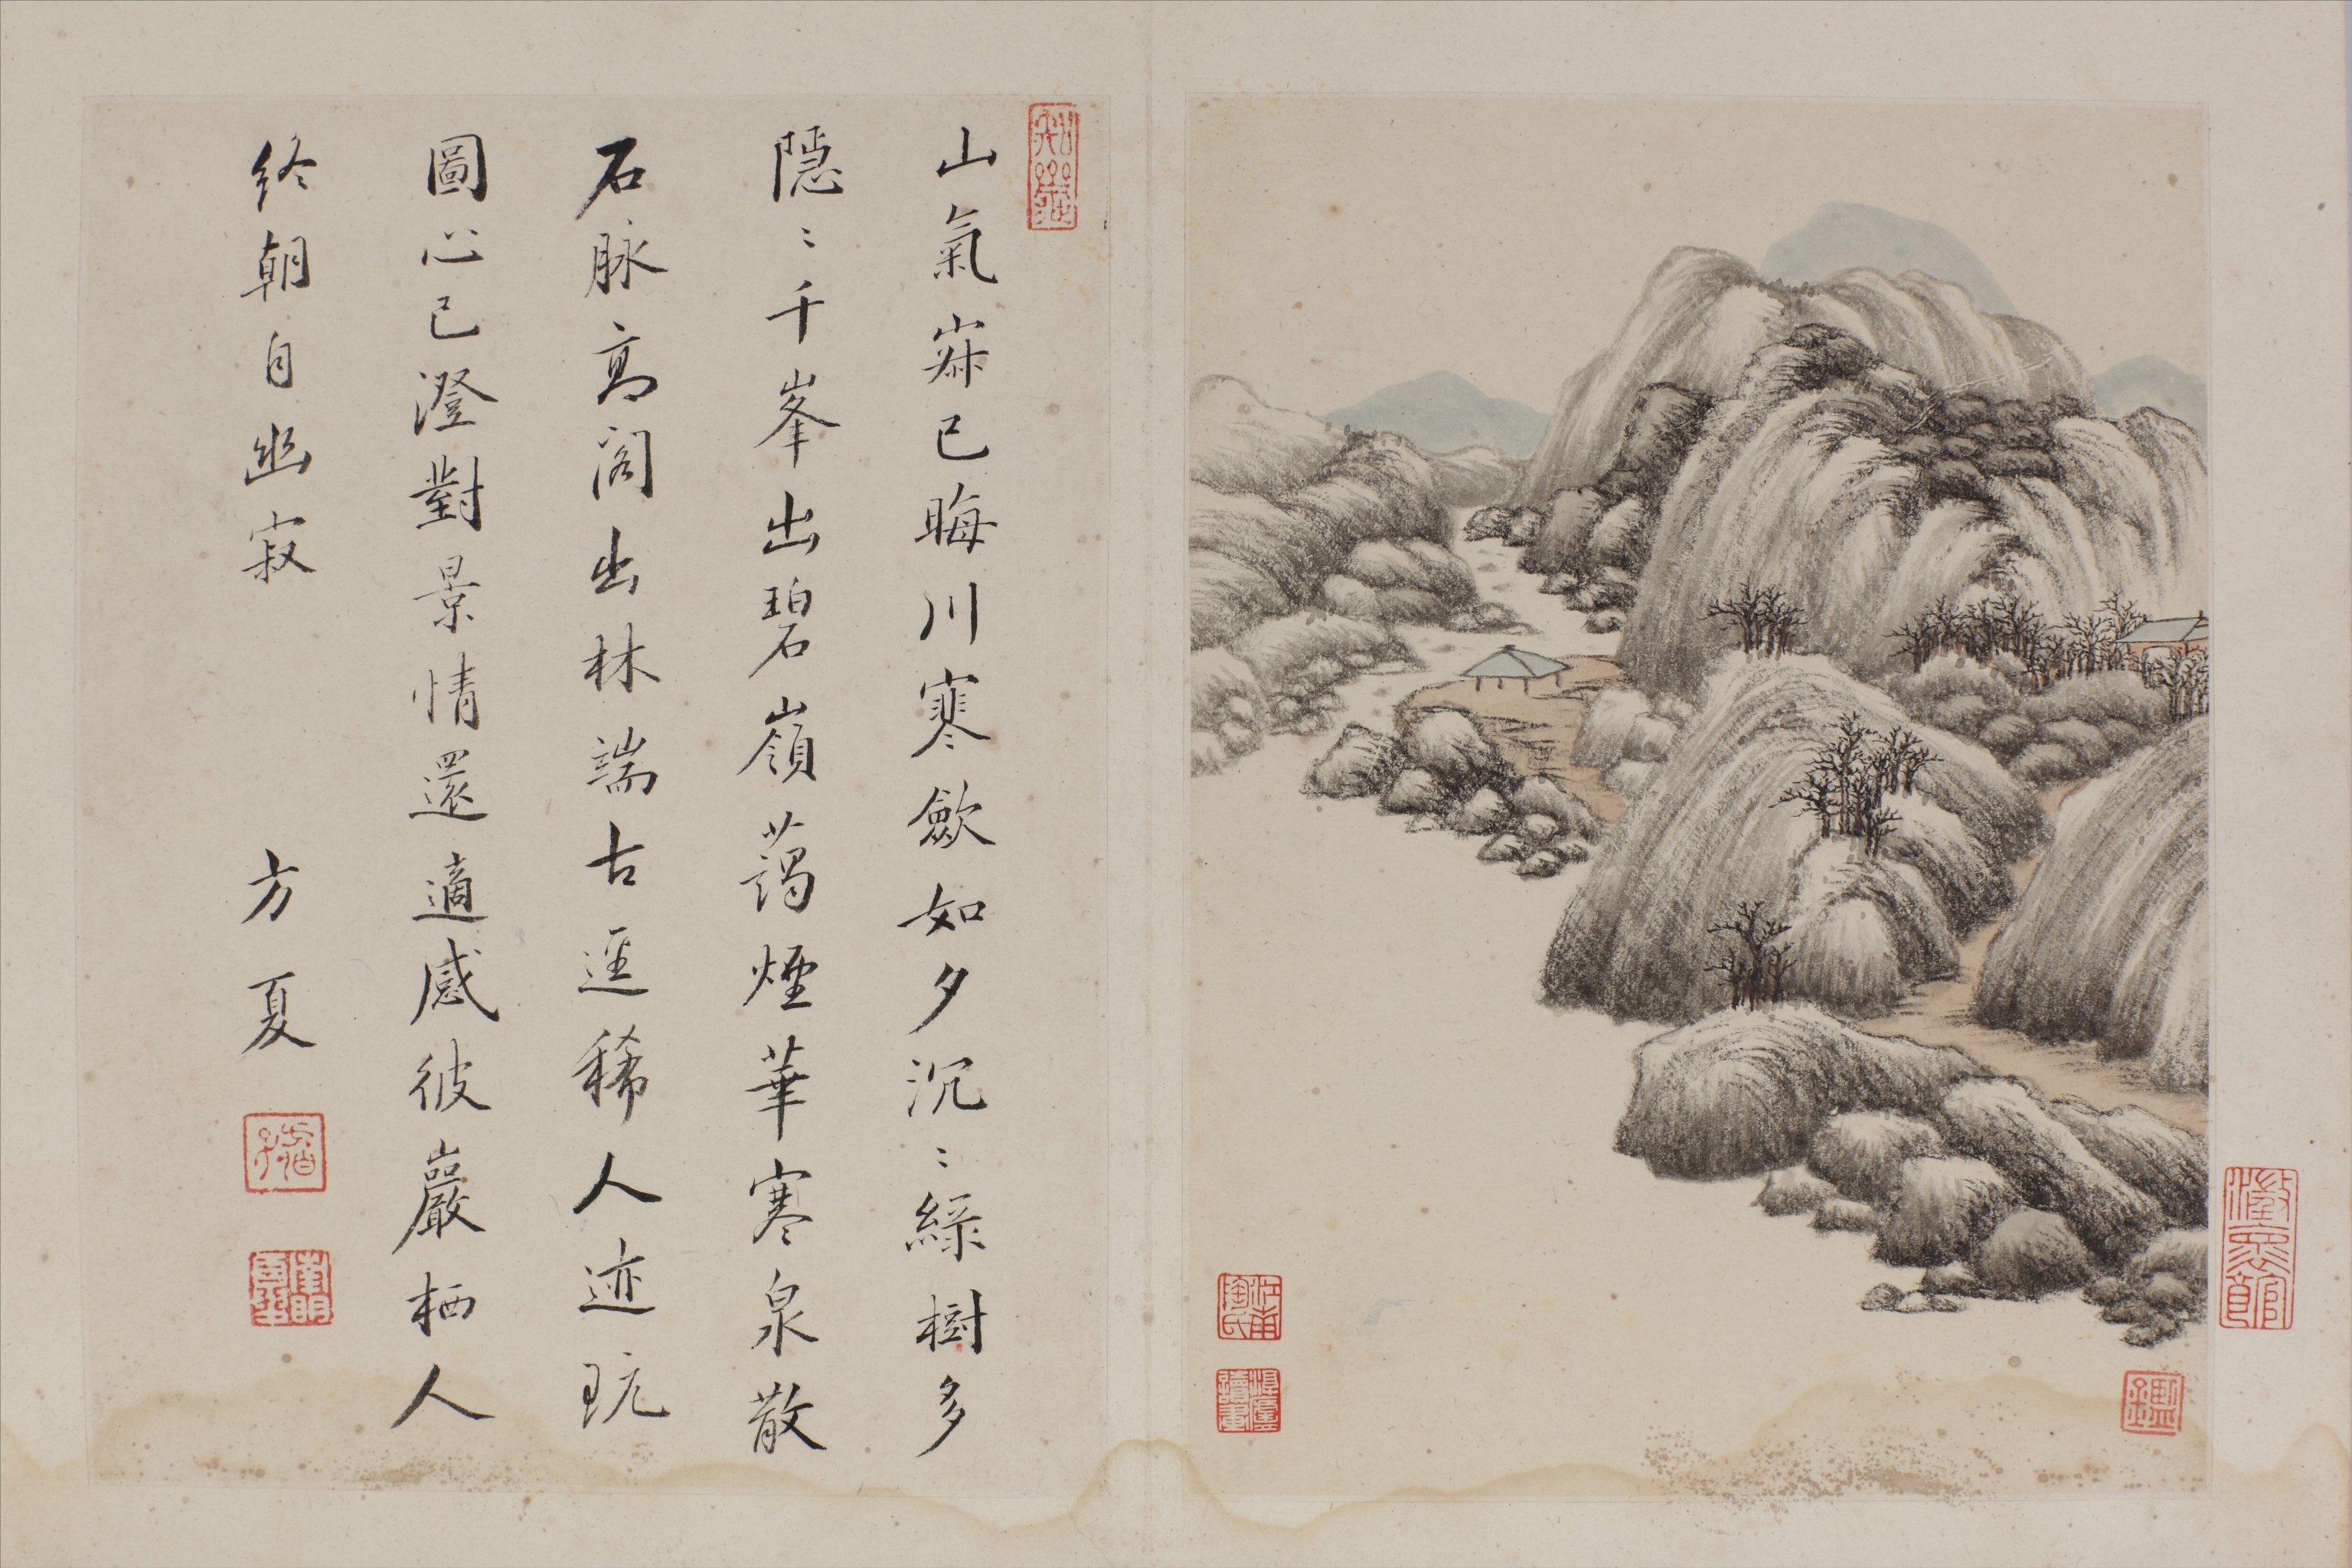 知樂
山氣已晦川寒歛如夕沉〻綠樹多
隱〻千峯出碧嶺藹煙華寒泉散
石脉高閣出林端古逕稀人迹玩
圖心已澄對景情還適感彼巖栖人
終朝自幽寂
方夏
鑑